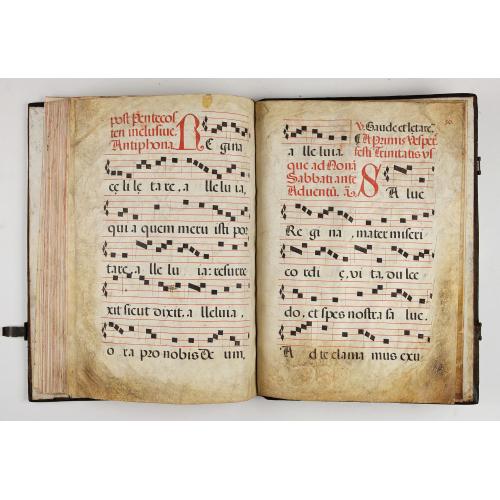 post Pentecos
ten inclusiue.
Antiphona. R
E gina
cę li lę ta re, a lle lu ia,
qui a quem meru isti por
tare, a lle lu ia: resurre
xit sicut dixit, a lleluia,
o ra pro nobis De um,
a lle luia. ℣. Gaude et letare,
A primis Vesper.
festi Trinitatis vſ
que ad Nonā
Sabbati ante
Aduentū. ā. S
A lue
Re gi na, mater miseri
co rdi ę, vi ta, du lce
do, et spes nostra sa lue.
A d te clama mus exu